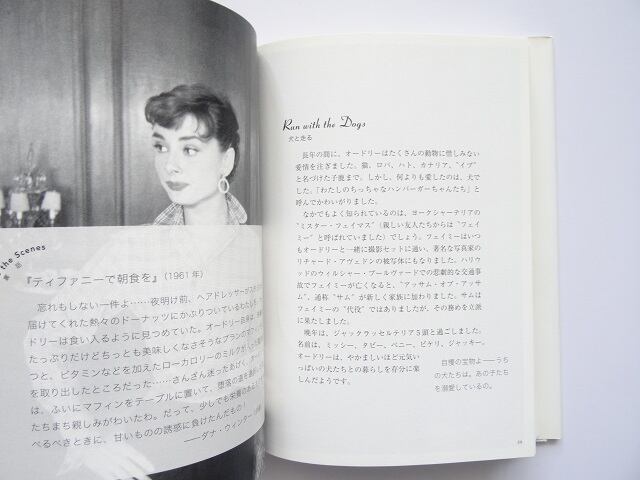 the Scenes
裏話
『ティファニーで朝食を』（1961年）
忘れもしない一件よ……夜明け前、ヘアドレッサーが
届けてくれた熱々のドーナッツにかぶりついているわたしを、
ドリーは食い入るように見つめていた。オードリー自身は、
たっぷりだけどちっとも美味しくなさそうなブランのマフィン
つと、ビタミンなどを加えたローカロリーのミルク
を取り出したところだった……さんざん迷ったあげく、
は、ふいにマフィンをテーブルに置いて、堕落の道を
たちまち親しみがわいたわ。だって、少しでも栄養のある
べるべきときに、甘いものの誘惑に負けたんだもの！
——ダナ・ウィンター
Run with the Dogs
犬と走る
長年の間に、オードリーはたくさんの動物に惜しみない
愛情を注ぎました。猫、ロバ、ハト、カナリア、“イプ”
と名づけた子鹿まで。しかし、何よりも愛したのは、犬で
した。「わたしのちっちゃなハンバーガーちゃんたち」と
呼んでかわいがりました。
なかでもよく知られているのは、ヨークシャーテリアの
“ミスター・フェイマス”（親しい友人たちからは“フェイ
ミー”と呼ばれていました）でしょう。フェイミーはいつ
もオードリーと一緒に撮影セットに通い、著名な写真家の
リチャード・アヴェドンの被写体にもなりました。ハリウ
ッドのウィルシャー・ブールヴァードでの悲劇的な交通事
故でフェイミーが亡くなると、“アッサム・オブ・アッサ
ム”、通称“サム”が新しく家族に加わりました。サムは
フェイミーの“代役”ではありましたが、その務めを立派
に果たしました。
晩年は、ジャックラッセルテリア５頭と過ごしました。
名前は、ミッシー、タピー、ペニー、ピケリ、ジャッキー。
オードリーは、やかましいほど元気い
っぱいの犬たちとの暮らしを存分に楽
しんだようです。
自慢の宝物よ——うち
の犬たちは。あの子たち
を溺愛しているの。